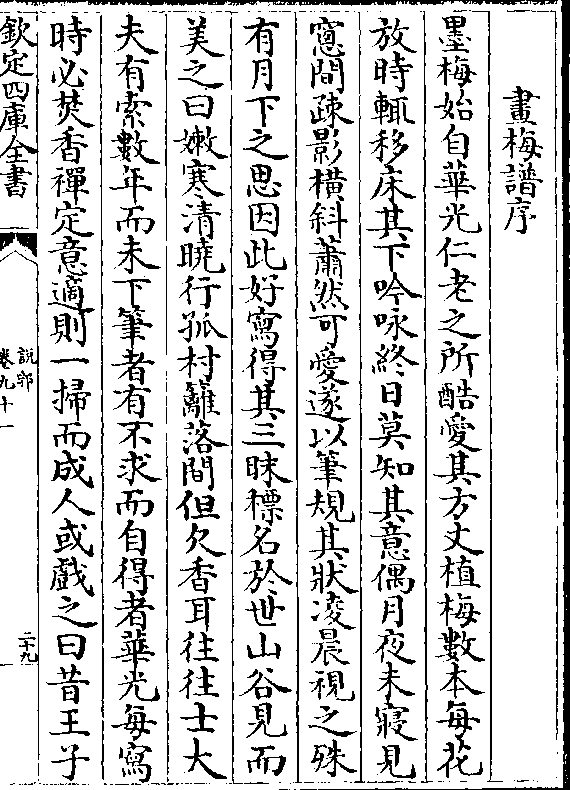 畫梅譜序
墨梅始自華光仁老之所酷愛其方丈植梅數本每花
放時輒移床其下吟咏終日莫知其意偶月夜未寢見
窻間疎影横斜蕭然可愛遂以筆規其狀凌晨視之殊
有月下之思因此好寫得其三昧標名於世山谷見而
美之曰嫩寒清曉行孤村籬落間但欠香耳往往士大
夫有索數年而未下筆者有不求而自得者華光每寫
時必焚香禪定意適則一掃而成人或戲之曰昔王子
欽定四庫全書
說郛
卷九十一
二十九